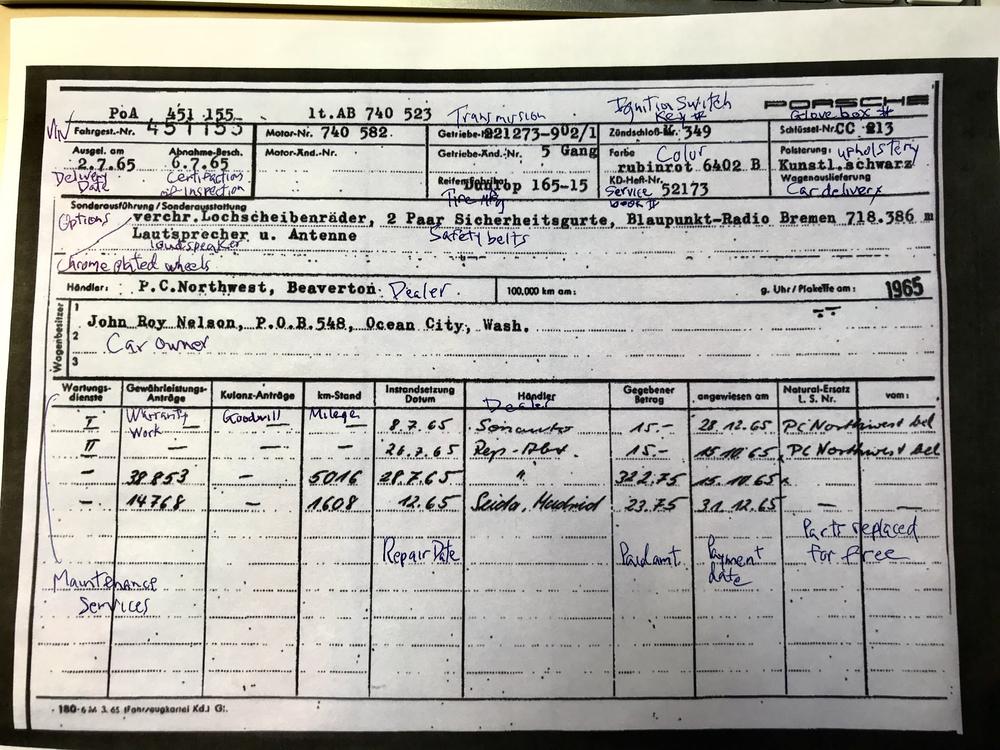 PoA 451 155 lt.AB 740 523 Transmission Ignition Switch Key # PORSCHE Glove box #
VIN Fahrgest.-Nr. 451155 Motor-Nr. 740 582. Getriebe-Nr. 221273-902/1 Zündschloß-Nr. K 349 Schlüssel-Nr. CC 213
Ausgel. am Abnahme-Besch. Motor-Änd.-Nr. Getriebe-Änd.-Nr. 5 Gang Farbe Color Polsterung: upholstery
2.7.65 6.7.65 rubinrot 6402 B Kunstl.schwarz
Delivery Date Certification of Inspection Reifenfabrikat Dunlop 165-15 KD-Heft-Nr. 52173 Wagenauslieferung
Tire Mfg Service book # Car delivery
Sonderausführung/Sonderausstattung
Options verchr.Lochscheibenräder, 2 Paar Sicherheitsgurte, Blaupunkt-Radio Bremen 718.386 m
Lautsprecher u. Antenne Safety belts
loudspeaker
Chrome plated wheels
Händler: P.C.Northwest, Beaverton Dealer 100.000 km am: g. Uhr/Plakette am: 1965
Wagenbesitzer
1 John Roy Nelson, P.O.B.548, Ocean City, Wash.
2 Car Owner
3
Wartungsdienste Gewährleistungs-Anträge Kulanz-Anträge km-Stand Instandsetzung Datum Händler Gegebener Betrag angewiesen am Natural-Ersatz L. S. Nr. vom:
Warranty Work Goodwill Milege Dealer
I — — 8.7.65 15.- 28.12.65 PC Northwest bel
II — — — 26.7.65 Rep-Abt. 15.- 15.10.65 PC Northwest bel
— 38853 — 5016 28.7.65 " 322.75 15.10.65
— 14768 — 1608 12.65 Seida, Madrid 23.75 31.12.65 — —
Repair Date Paid amt Payment date Parts replaced for free
Maintenance Services
180 (Fahrzeugkartei Kd.)